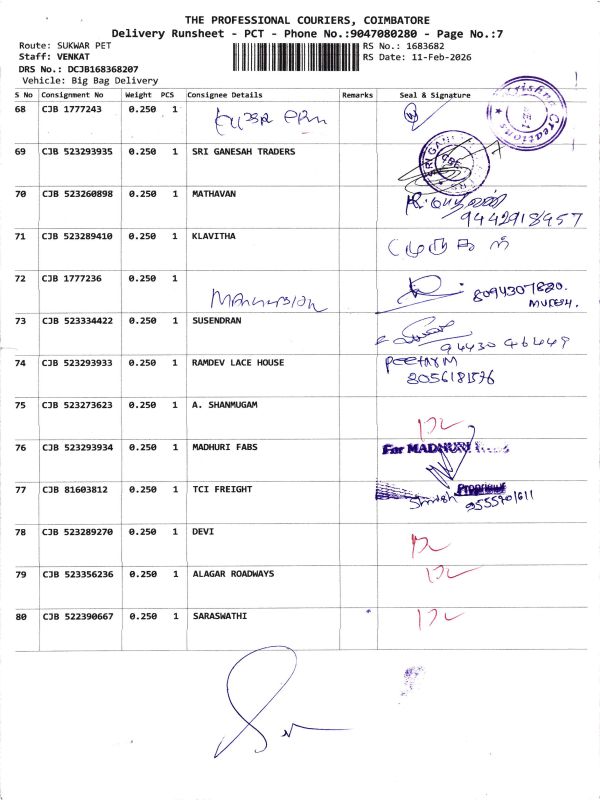 THE PROFESSIONAL COURIERS, COIMBATORE
Delivery Runsheet - PCT - Phone No.:9047080280 - Page No.:7
Route: SUKWAR PET RS No.: 1683682
Staff: VENKAT RS Date: 11-Feb-2026
DRS No.: DCJB168368207
Vehicle: Big Bag Delivery
S No Consignment No Weight PCS Consignee Details Remarks Seal & Signature
68 CJB 1777243 0.250 1
69 CJB 523293935 0.250 1 SRI GANESAH TRADERS
70 CJB 523260898 0.250 1 MATHAVAN
9442918957
71 CJB 523289410 0.250 1 KLAVITHA
முருகன்
72 CJB 1777236 0.250 1
8094307820.
MUKESH.
73 CJB 523334422 0.250 1 SUSENDRAN
94430 46449
74 CJB 523293933 0.250 1 RAMDEV LACE HOUSE
8056181576
75 CJB 523273623 0.250 1 A. SHANMUGAM
76 CJB 523293934 0.250 1 MADHURI FABS
For MADHURI
77 CJB 81603812 0.250 1 TCI FREIGHT
Proprietor
78 CJB 523289270 0.250 1 DEVI
79 CJB 523356236 0.250 1 ALAGAR ROADWAYS
80 CJB 522390667 0.250 1 SARASWATHI